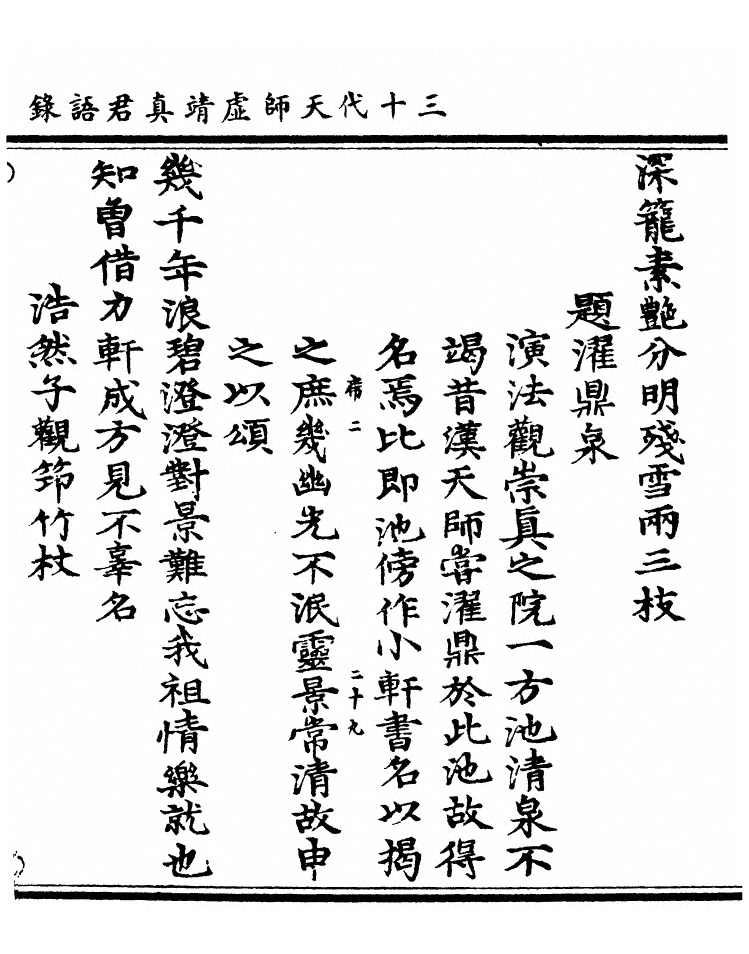 三十代天師虛靖真君語錄
深籠素艷分明殘雪兩三枝
題濯鼎泉
演法觀崇真之院一方池清泉不
竭昔漢天師嘗濯鼎於此池故得
名焉比即池傍作小軒書名以揭
席二
二十九
之庶幾幽光不泯靈景常清故申
之以頌
幾千年浪碧澄澄對景難忘我祖情樂就也
知曾借力軒成方見不辜名
浩然子觀筇竹杖